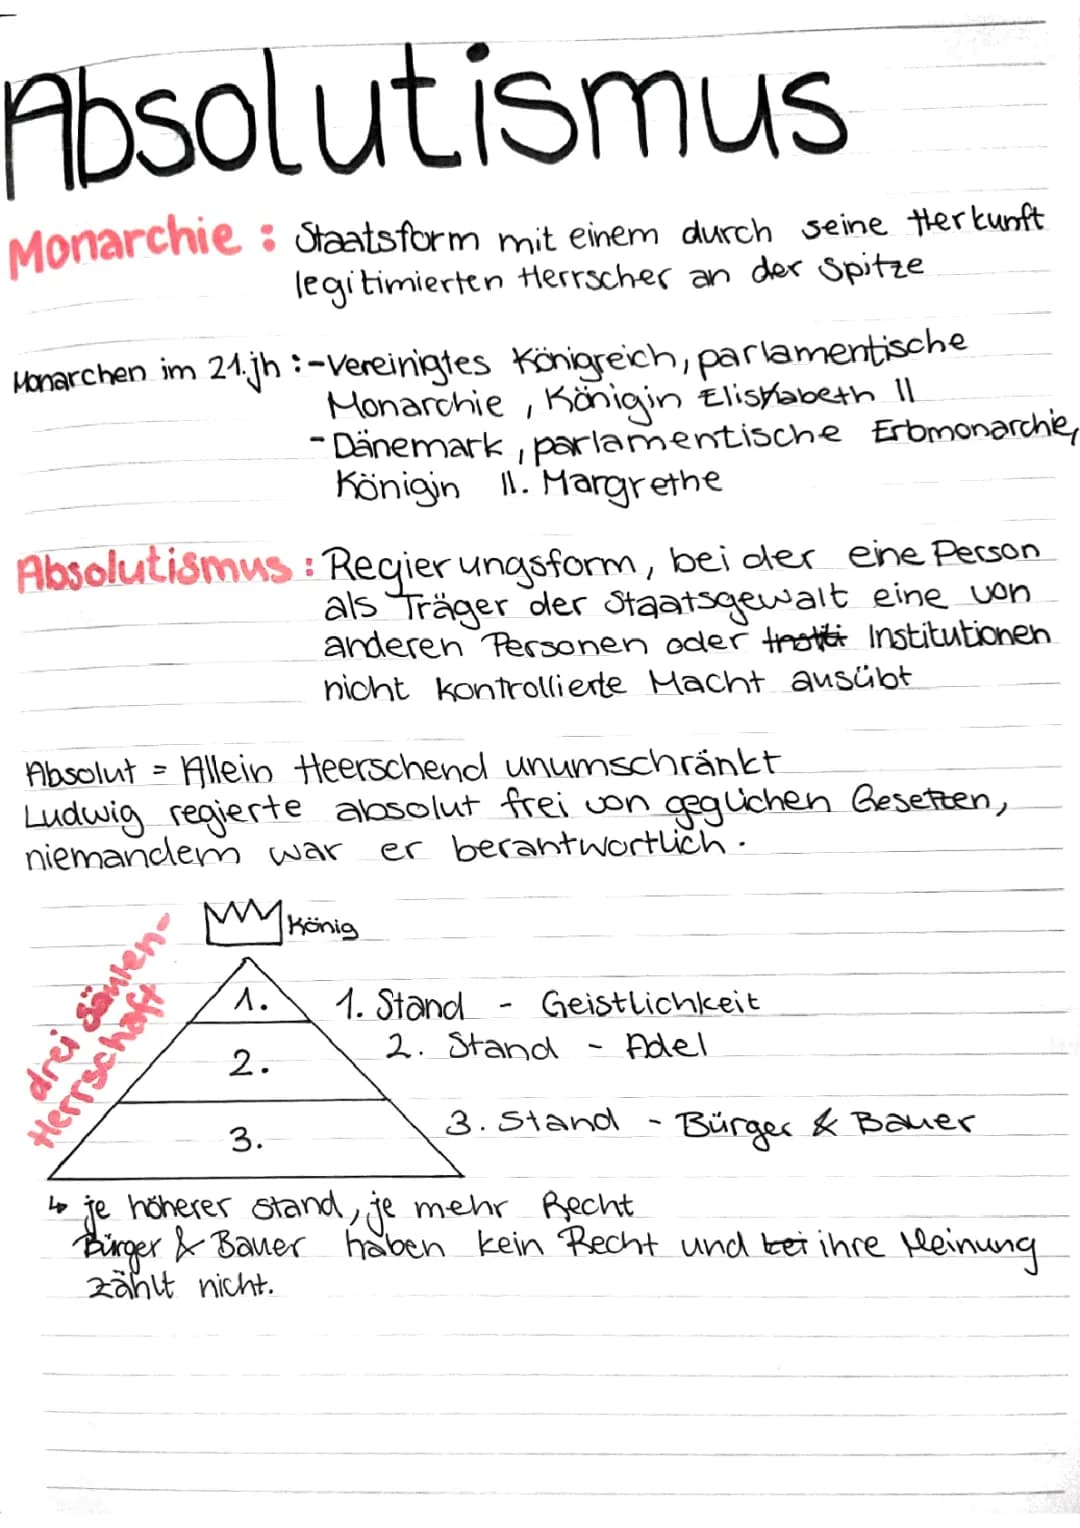 Absolutismus
Monarchie : Staatsform mit einem durch seine Herkunft
legitimierten Herrscher an der Spitze
Monarchen im 21.jh :-Vereinigtes Königreich, parlamentische
Monarchie, Königin Elishabeth II
-Dänemark, parlamentische Erbmonarchie,
Königin II. Margrethe
Absolutismus : Regierungsform, bei der eine Person
als Träger der Staatsgewalt eine von
anderen Personen oder Institutionen
nicht kontrollierte Macht ausübt
Absolut = Allein Heerschend unumschränkt
Ludwig regierte absolut frei von geglichen Gesetzen,
niemandem war er berantwortlich.
König
drei Säulen-
Herrschaft
1.
1. Stand - Geistlichkeit
2.
2. Stand - Adel
3.
3. Stand - Bürger & Bauer
↳ je höherer Stand, je mehr Recht
Bürger & Bauer haben kein Recht und bei ihre Meinung
zählt nicht.